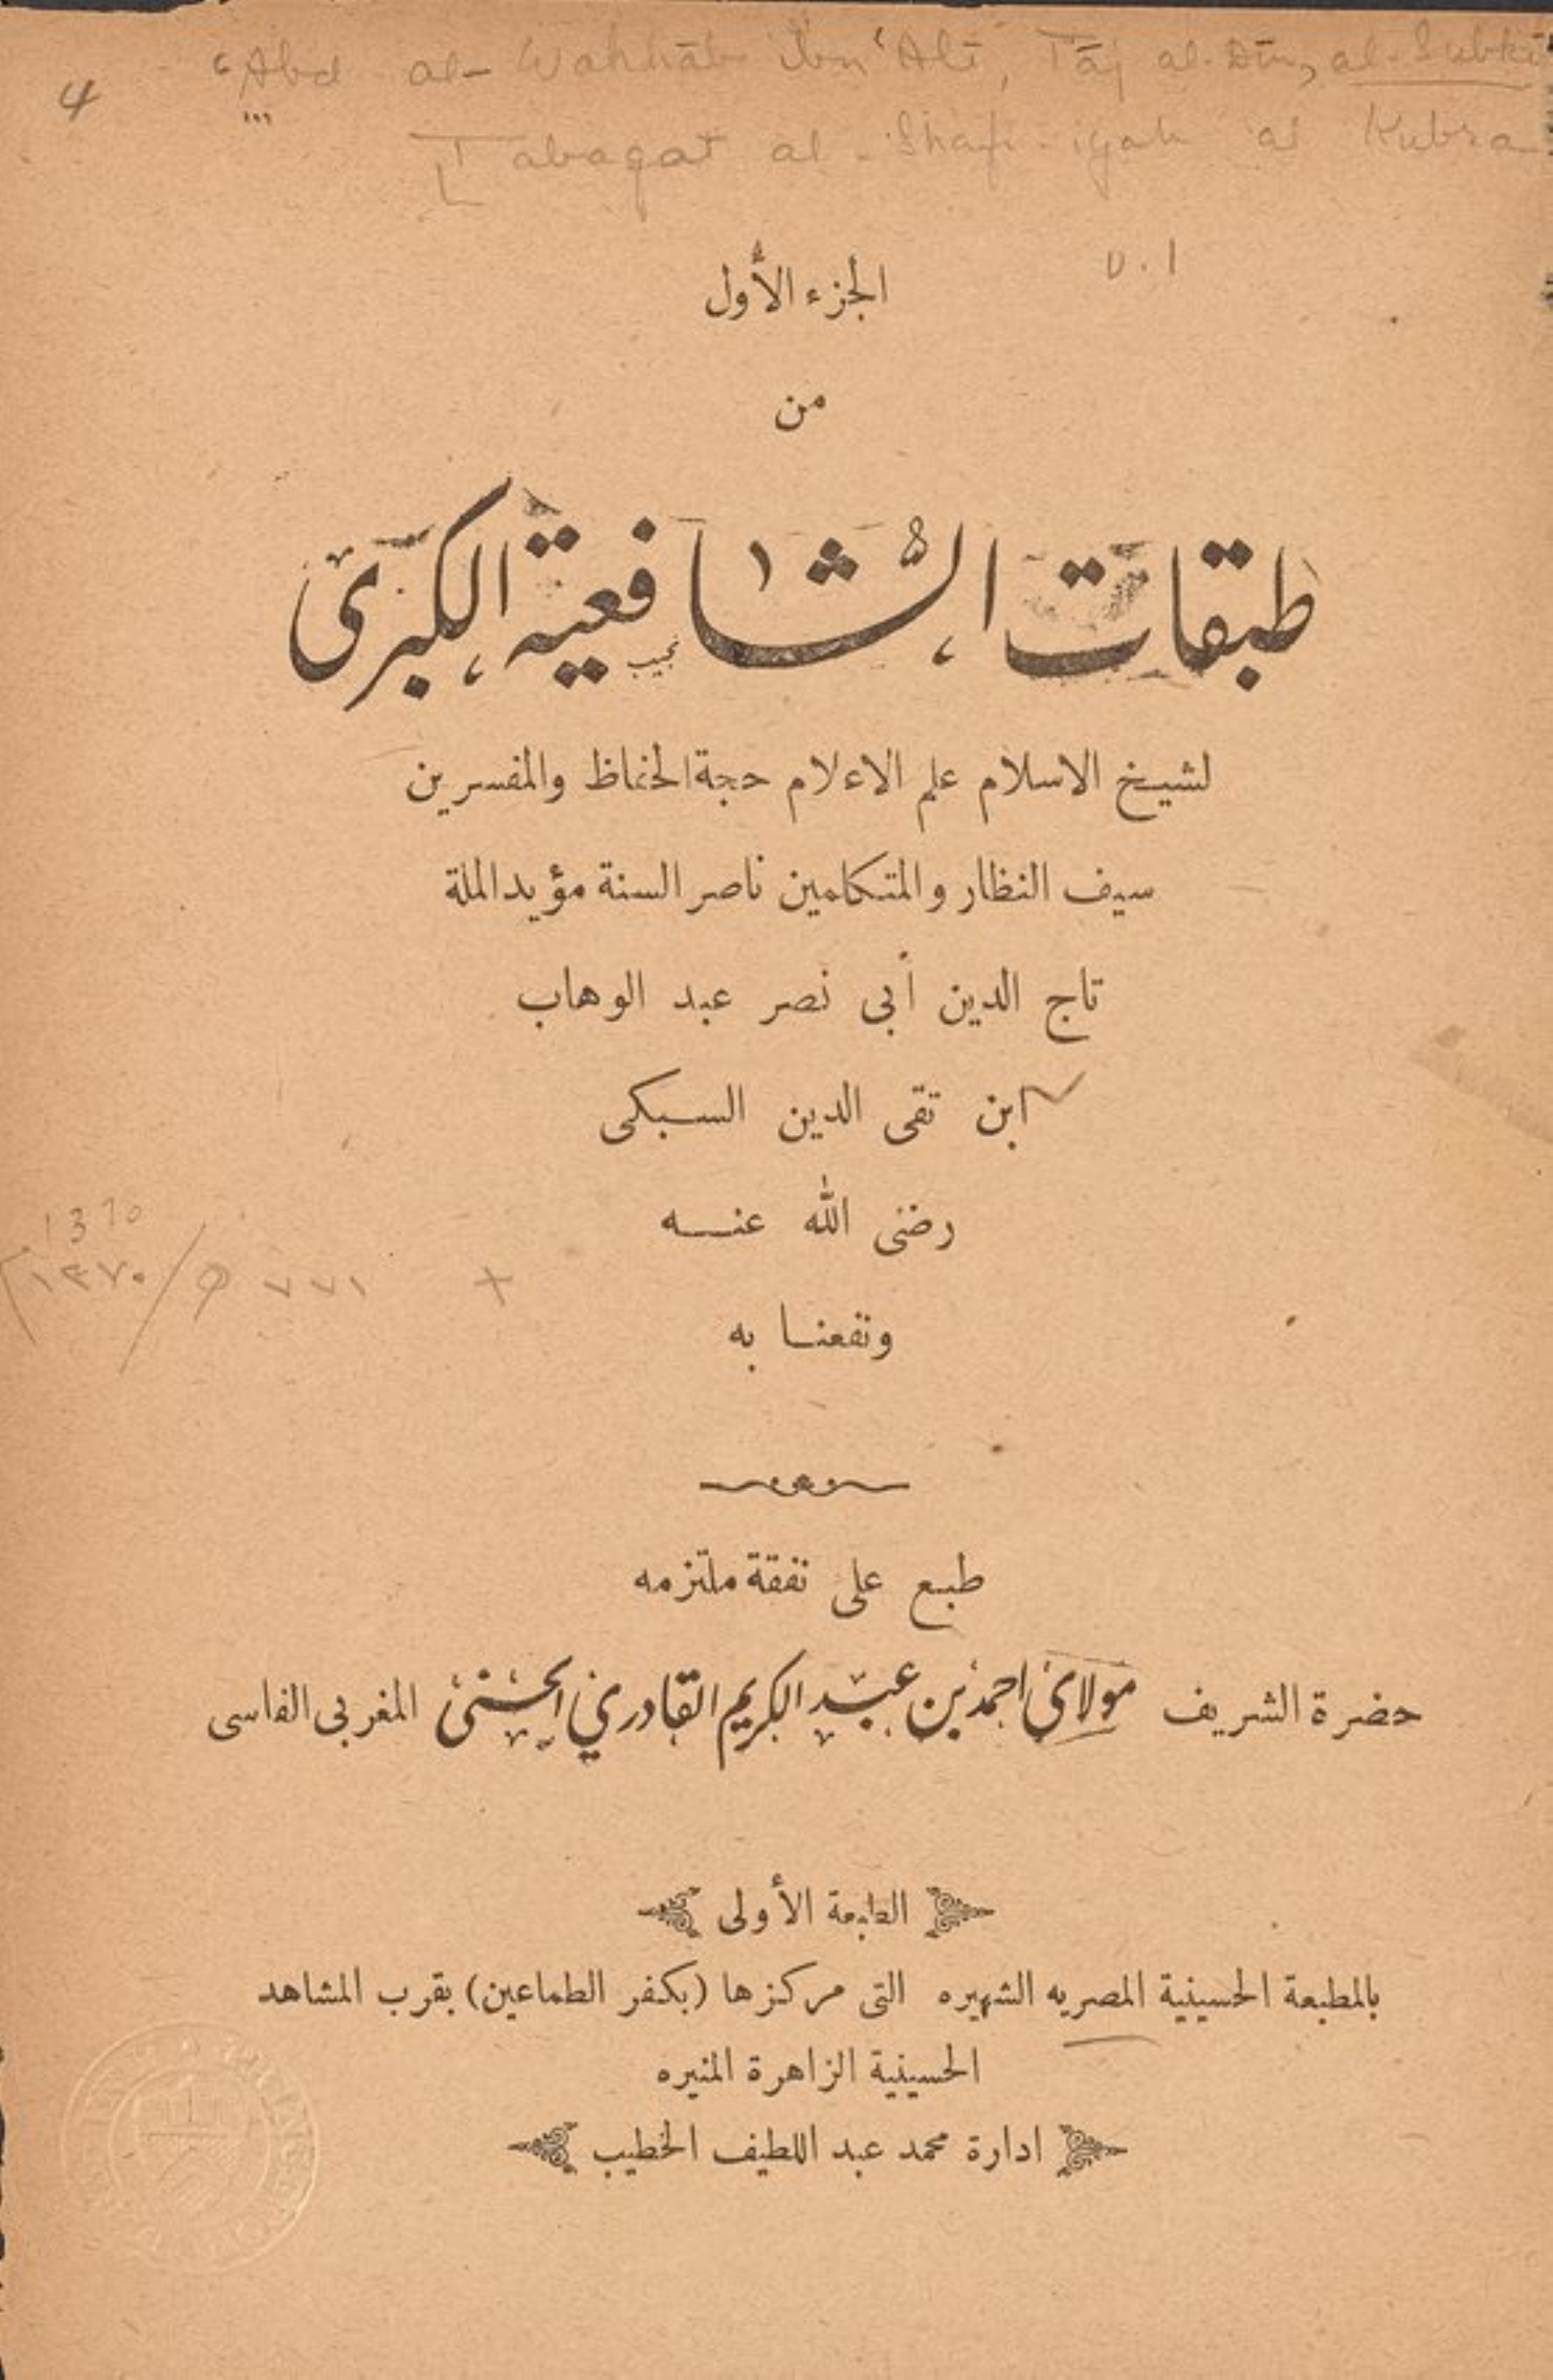 ‘Abd al-Wahhāb ibn ‘Alī, Tāj al-Dīn, al-Subkī
4
Tabaqat al-Shafi-iyah al Kubra
v.1
الجزء الأول
من
طبقات الشافعية الكبرى
نجيب
لشيخ الاسلام علم الاعلام حجة الحفاظ والمفسرين
سيف النظار والمتكلمين ناصر السنة مؤيد الملة
تاج الدين أبى نصر عبد الوهاب
ابن تقى الدين السبكى
رضى الله عنه
1370
١٣٧٠ / ٧٧١
ونفعنا به
طبع على نفقة ملتزمه
حضرة الشريف مولاي احمد بن عبد الكريم القادري الحسني المغربى الفاسى
الطبعة الأولى
بالمطبعة الحسينية المصريه الشهيره التى مركزها (بكفر الطماعين) بقرب المشاهد
الحسينية الزاهرة المنيره
ادارة محمد عبد اللطيف الخطيب